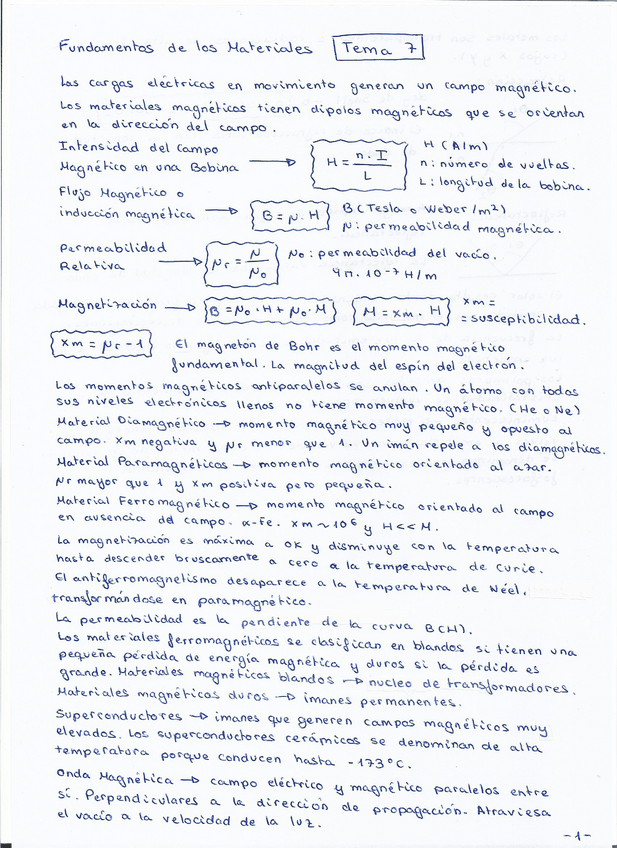 Fundamentos de los Materiales Tema 7
Las cargas eléctricas en movimiento generan un campo magnético.
Los materiales magnéticos tienen dipolos magnéticos que se orientan
en la dirección del campo.
Intensidad del Campo
Magnético en una Bobina → H = n · I / L
H (A/m)
n: número de vueltas.
L: longitud de la bobina.
Flujo Magnético o
inducción magnética → B = μ · H
B (Tesla o Weber/m²)
μ: permeabilidad magnética.
Permeabilidad
Relativa → μr = μ / μo
μo: permeabilidad del vacío.
4π · 10⁻⁷ H/m
Magnetización → B = μo · H + μo · M M = xm · H
xm =
= susceptibilidad.
xm = μr - 1
El magnetón de Bohr es el momento magnético
fundamental. La magnitud del espín del electrón.
Los momentos magnéticos antiparalelos se anulan. Un átomo con todos
sus niveles electrónicos llenos no tiene momento magnético. (He o Ne)
Material Diamagnético → momento magnético muy pequeño y opuesto al
campo. xm negativa y μr menor que 1. Un imán repele a los diamagnéticos.
Material Paramagnéticos → momento magnético orientado al azar.
μr mayor que 1 y xm positiva pero pequeña.
Material Ferromagnético → momento magnético orientado al campo
en ausencia del campo. α-Fe. xm ~ 10⁶ y H << M.
La magnetización es máxima a 0K y disminuye con la temperatura
hasta descender bruscamente a cero a la temperatura de Curie.
El antiferromagnetismo desaparece a la temperatura de Néel,
transformándose en paramagnético.
La permeabilidad es la pendiente de la curva B(H).
Los materiales ferromagnéticos se clasifican en blandos si tienen una
pequeña pérdida de energía magnética y duros si la pérdida es
grande. Materiales magnéticos blandos → nucleo de transformadores.
Materiales magnéticos duros → imanes permanentes.
Superconductores → imanes que generen campos magnéticos muy
elevados. Los superconductores cerámicos se denominan de alta
temperatura porque conducen hasta -173°C.
Onda Magnética → campo eléctrico y magnético paralelos entre
sí. Perpendiculares a la dirección de propagación. Atraviesa
el vacío a la velocidad de la luz.
-1-